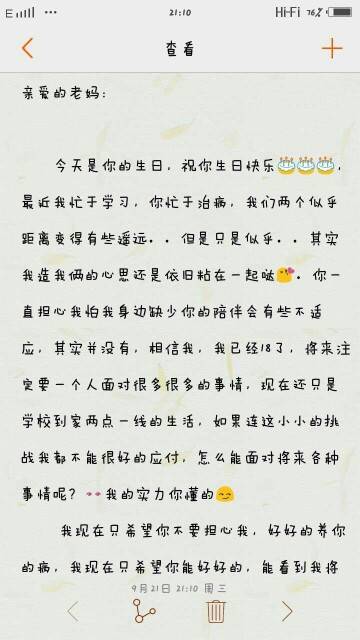 E 21:10 Hi-Fi 76%
查看
亲爱的老妈：
今天是你的生日，祝你生日快乐🎂🎂🎂，
最近我忙于学习，你忙于治病，我们两个似乎
距离变得有些遥远．．但是只是似乎．．其实
我造我俩的心思还是依旧粘在一起哒😘．你一
直担心我怕我身边缺少你的陪伴会有些不适
应，其实并没有，相信我，我已经18了，将来注
定要一个人面对很多很多的事情，现在还只是
学校到家两点一线的生活，如果连这小小的挑
战我都不能很好的应付，怎么能面对将来各种
事情呢？👀我的实力你懂的😏
我现在只希望你不要担心我，好好的养你
的病，我现在只希望你能好好的，能看到我将
9月21日 21:10 周三